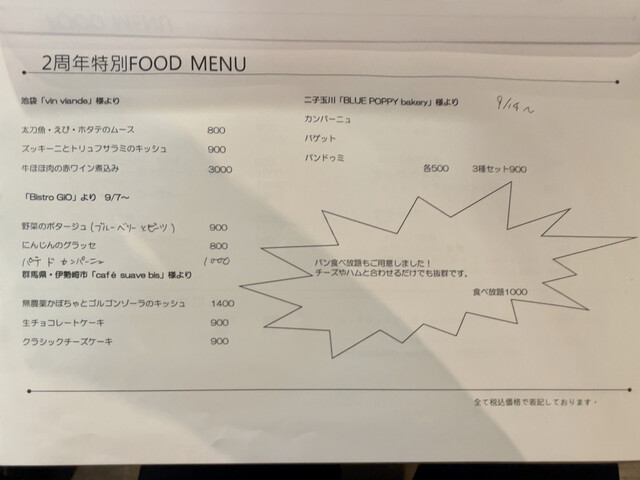 2周年特別FOOD MENU
池袋「vin viande」様より
太刀魚・えび・ホタテのムース 800
ズッキーニとトリュフサラミのキッシュ 900
牛ほほ肉の赤ワイン煮込み 3000
「Bistro GIO」より 9/7～
野菜のポタージュ(ブルーベリーとビーツ) 900
にんじんのグラッセ 800
パテドカンパーニュ 1000
群馬県・伊勢崎市「café suave bis」様より
無農薬かぼちゃとゴルゴンゾーラのキッシュ 1400
生チョコレートケーキ 900
クラシックチーズケーキ 900
二子玉川「BLUE POPPY bakery」様より 9/14～
カンパーニュ
バゲット
パンドゥミ
各500 3種セット900
パン食べ放題もご用意しました！
チーズやハムと合わせるだけでも抜群です。
食べ放題1000
全て税込価格で表記しております・